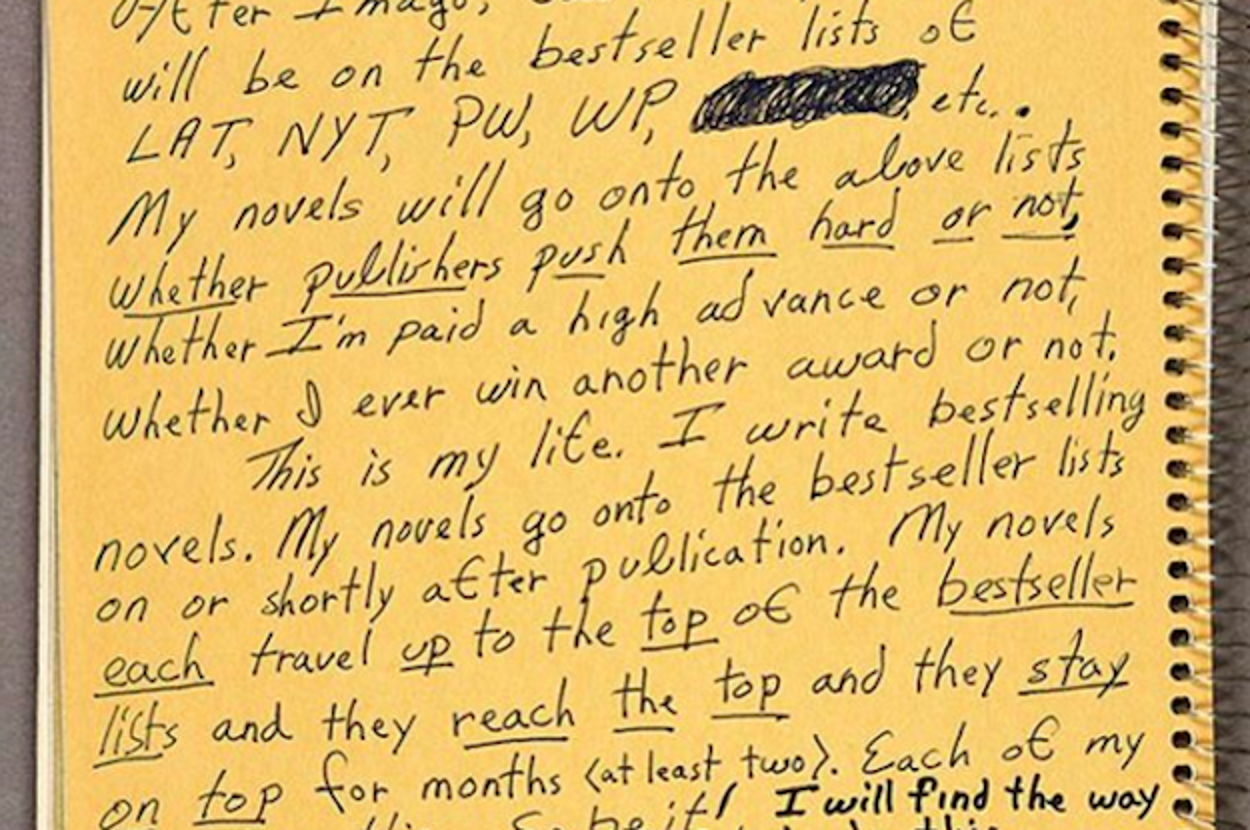 after Imago,
will be on the bestseller lists of
LAT, NYT, PW, WP, etc..
My novels will go onto the above lists
whether publishers push them hard or not,
whether I'm paid a high advance or not,
whether I ever win another award or not.
This is my life. I write bestselling
novels. My novels go onto the bestseller lists
on or shortly after publication. My novels
each travel up to the top of the bestseller
lists and they reach the top and they stay
on top for months (at least two). Each of my
So be it! I will find the way